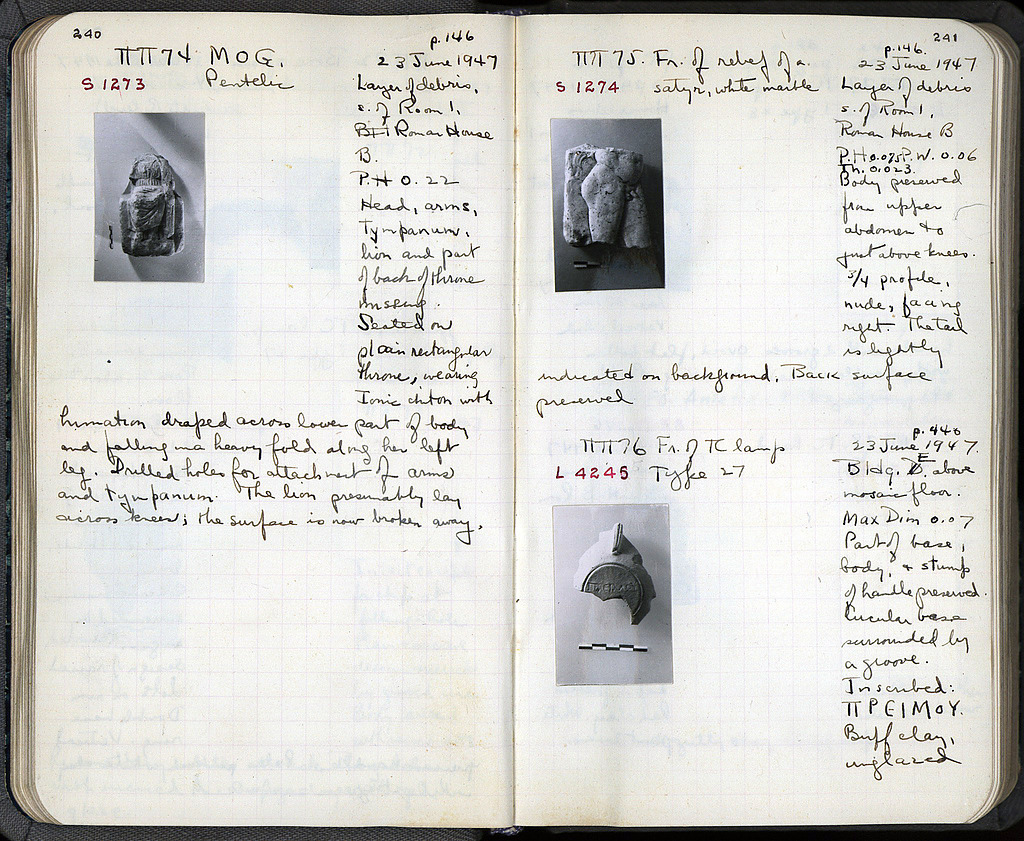 240
p.146
ΠΠ 74 MOG.
23 June 1947
S 1273
Pentelic
Layer of debris,
s. of Room 1,
Roman House
B.
P.H 0.22
Head, arms,
tympanum,
lion and part
of back of throne
missing.
Seated on
plain rectangular
throne, wearing
Ionic chiton with
himation draped across lower part of body
and falling in a heavy fold along her left
leg. Drilled holes for attachment of arms
and tympanum. The lion presumably lay
across knees; the surface is now broken away.
241
p.146.
ΠΠ 75. Fr. of relief of a
23 June 1947
S 1274
satyr, white marble
Layer of debris
s. of Room 1,
Roman House B
P.H 0.075 P.W. 0.06
Th. 0.023.
Body preserved
from upper
abdomen to
just above knees.
3/4 profile,
nude, facing
right. The tail
is lightly
indicated on background. Back surface
preserved
p. 440
ΠΠ 76 Fr. of TC lamp
23 June 1947.
L 4245
Type 27
Bldg. E above
mosaic floor.
Max Dim 0.07
Part of base,
body, + stump
of handle preserved.
Circular base
surrounded by
a groove.
Inscribed:
ΠΡΕΙΜΟΥ.
Buff clay,
unglazed